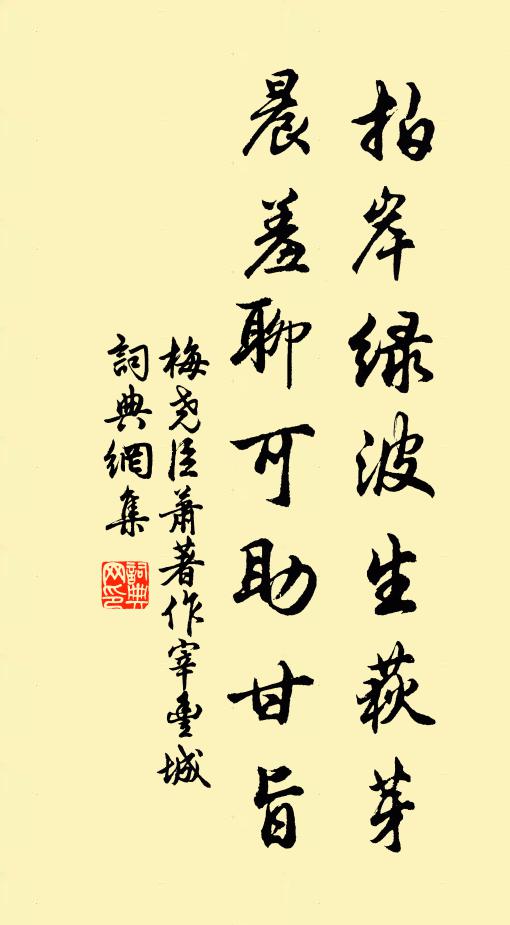 拍岸緑波生荻芽
晨羞聊可助甘旨
梅尧臣萧著作宰豊城
詞典網集
詞典网印